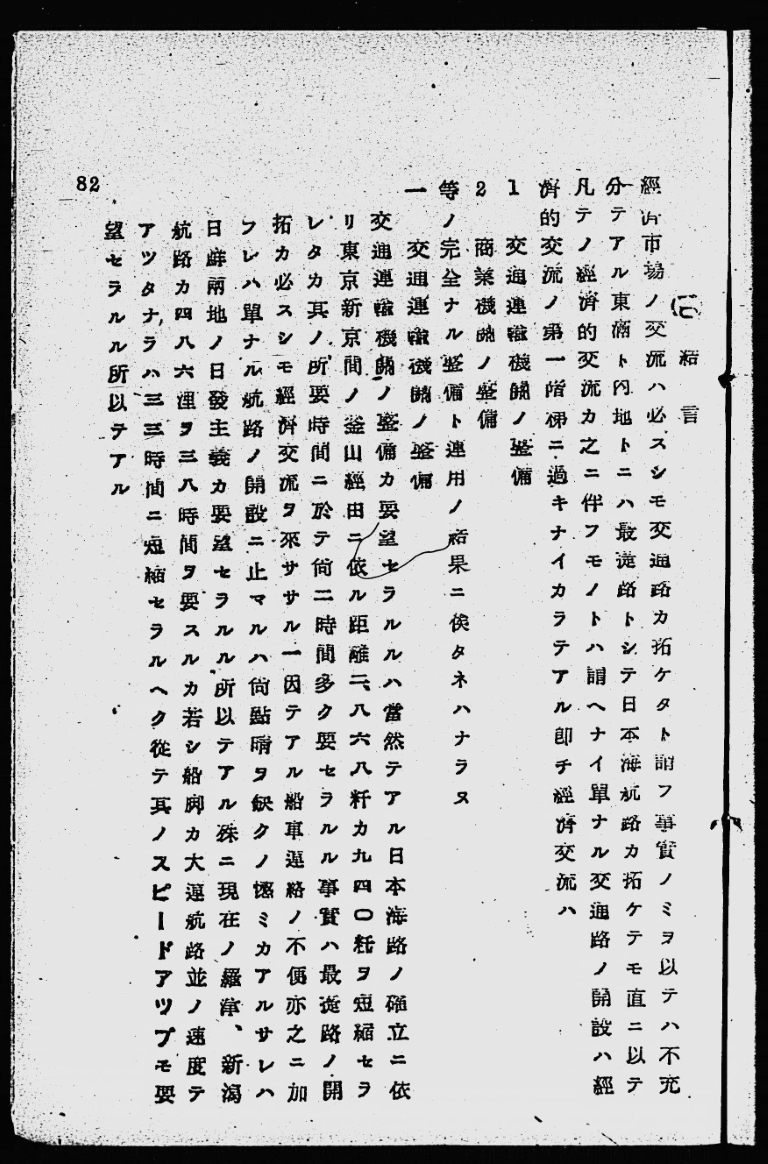 (二) 結言
經濟市場ノ交流ハ必スシモ交通路カ拓ケタト謂フ事實ノミヲ以テハ不充
分テアル東滿ト内地トニハ最捷路トシテ日本海航路カ拓ケテモ直ニ以テ
凡テノ經濟的交流カ之ニ伴フモノトハ謂ヘナイ單ナル交通路ノ開設ハ經
濟的交流ノ第一階梯ニ過キナイカラテアル卽チ經濟交流ハ
1 交通運輸機關ノ整備
2 商業機關ノ整備
等ノ完全ナル整備ト運用ノ結果ニ俟タネハナラヌ
一 交通運輸機關ノ整備
交通運輸機關ノ整備カ要望セラルルハ當然テアル日本海路ノ確立ニ依
リ東京新京間ノ釜山經由ニ依ル距離二、八六八粁カ九四〇粁ヲ短縮セラ
レタカ其ノ所要時間ニ於テ尙二時間多ク要セラルル事實ハ最捷路ノ開
拓カ必スシモ經濟交流ヲ來ササル一因テアル船車連絡ノ不便亦之ニ加
フレハ單ナル航路ノ開設ニ止マルハ尙點睛ヲ缺クノ憾ミカアルサレハ
日鮮兩地ノ日發主義カ要望セラルル所以テアル殊ニ現在ノ羅津、新潟
航路カ四八六浬ヲ三八時間ヲ要スルカ若シ船脚カ大連航路並ノ速度テ
アツタナラハ三三時間ニ短縮セラルヘク從テ其ノスピードアツプモ要
望セラルル所以テアル
82